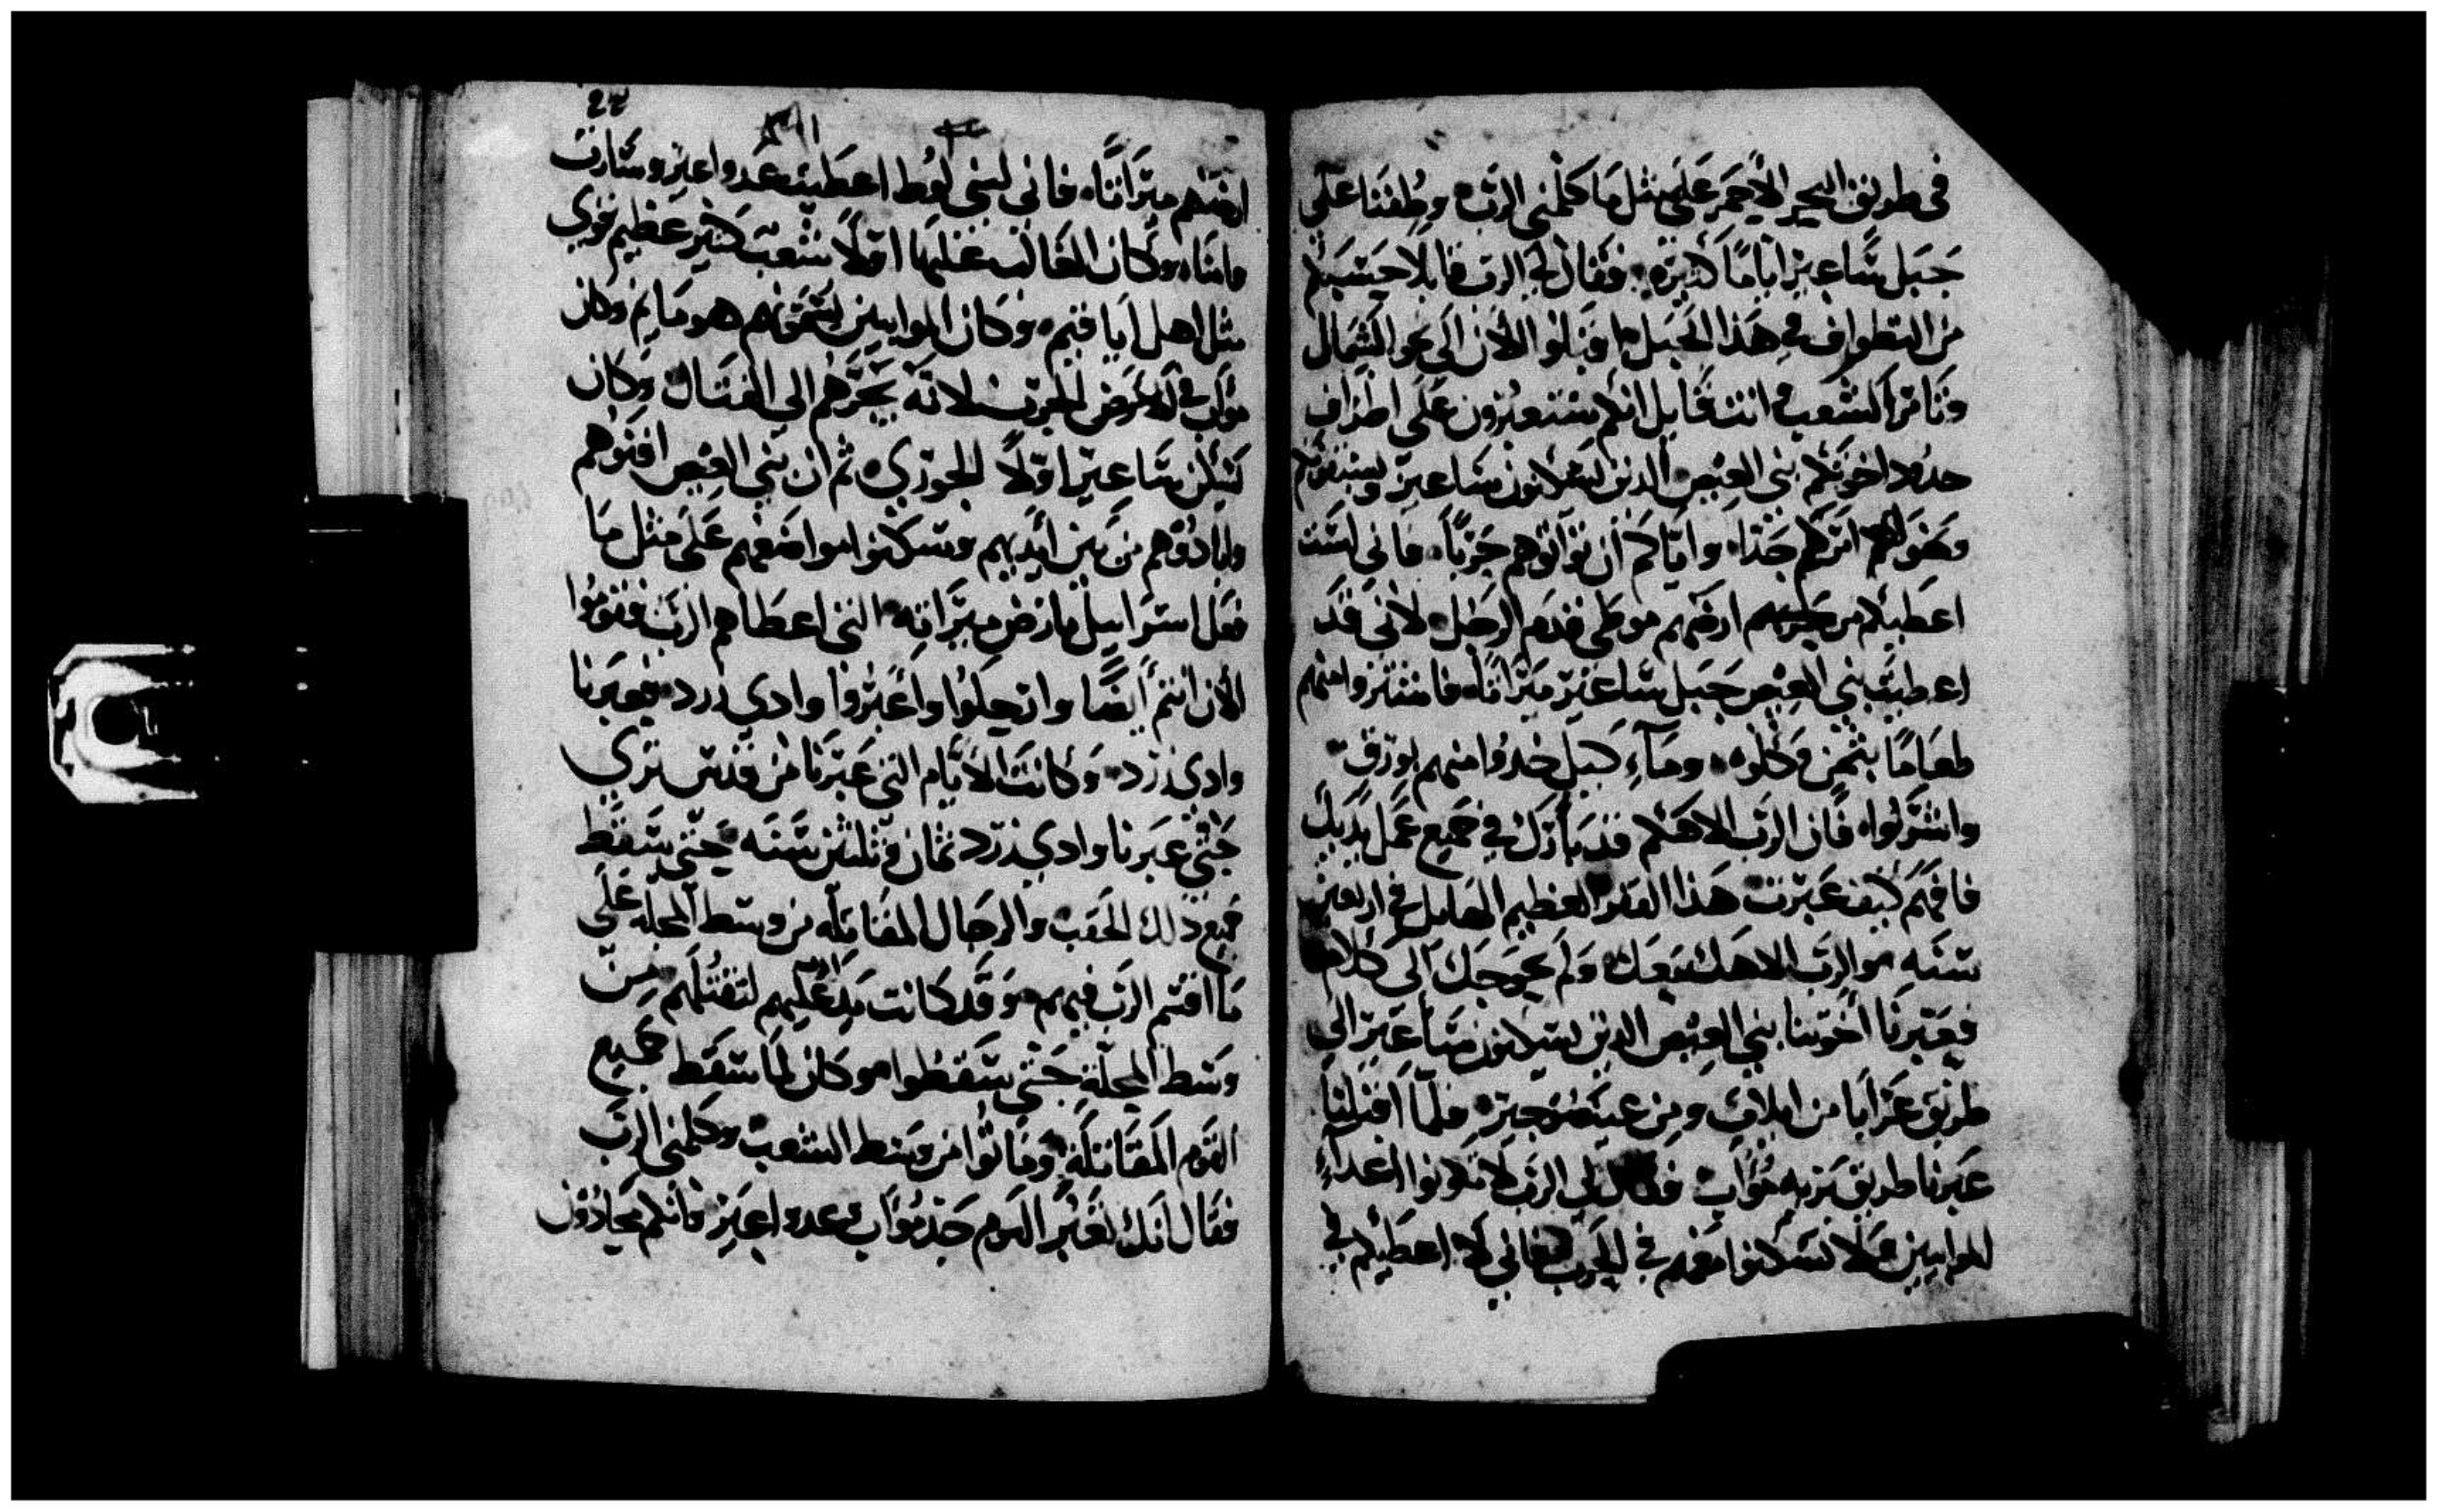 في طريق البحر الأحمر على مثل ما كلمني الرب وطفنا على
جبل ساعير اياما كثيره فقال لي الرب قايلا حسبكم
من التطواف في هذا الجبل اقبلوا الأن الى نحو الشمال
وتامر الشعب انت قايل انكم ستعبرون على اطراف
حدود اخوتكم بني العيص الدين يسكنون ساعير
جدا واياكم ان توانوهم حربا فاني لست
اعطيكم من ارضهم موطى قدم الرجل لاني قد
اعطيت بني العيص جبل ساعير ميراثا فامتنروا منهم
طعاما بثمن وكلوه وماء كيل خدوا منهم بورق
واشربوا فان الرب الاهكم قد بارك في جميع عمل يديك
فافهم كيف عبرت هذا القفر العظيم الهايل في اربعين
سنه والرب الاهك معك ولم يحوجك الى كلام
فعبرنا اخوتنا بني العيص الدين يسكنون ساعير الى
طريق عرابا من ايلاف ومن عيصنوجير فلما اقبلنا
عبرنا طريق بريه مواب فقال لي الرب لا تكونوا اعداء
الموابيين ولا تسكنوا معهم في الحرب فاني لا اعطيكم في
٤٣
ارضهم ميراثا فاني لبني لوط اعطيت عدو اعير وسارت
وامناه وكان الغالب عليها اولا شعب كثير عظيم قوي
مثل اهل ايافيم وكان الموابيين يسمونهم هومايم وكان
لانه يجرهم الى القتال وكان
يسكن ساعير اولا الحوري ثم ان بني العيص افنوهم
وابادوهم من بين ايديهم وسكنوا مواضعهم على مثل ما
فعل اسراييل بارض ميراثه التي اعطاهم الرب فقوموا
الأن انتم ايضا وارتحلوا واعبروا وادي زرد فعبرنا
وادي زرد وكانت الايام التي عبرنا من قدس نري
حتى عبرنا وادي زرد ثمان وثلثين سنه حتى سقط
جميع ذلك الحقب والرجال المقاتله من وسط المحله على
ما اقسم الرب فيهم وقد كانت يد عليهم لتقتلهم من
وسط المحلة حتى سقطوا وكان لما سقط جميع
القوم المقاتلة وماتوا من وسط الشعب وكلمني الرب
فقال انك لعبر اليوم حد مواب عدو اعير فانكم تجادون